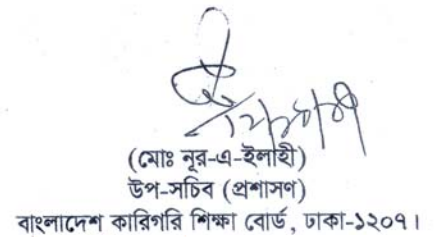 (মোঃ নূর-এ-ইলাহী)
উপ-সচিব (প্রশাসণ)
বাংলাদেশ কারিগরি শিক্ষা বোর্ড, ঢাকা-১২০৭।